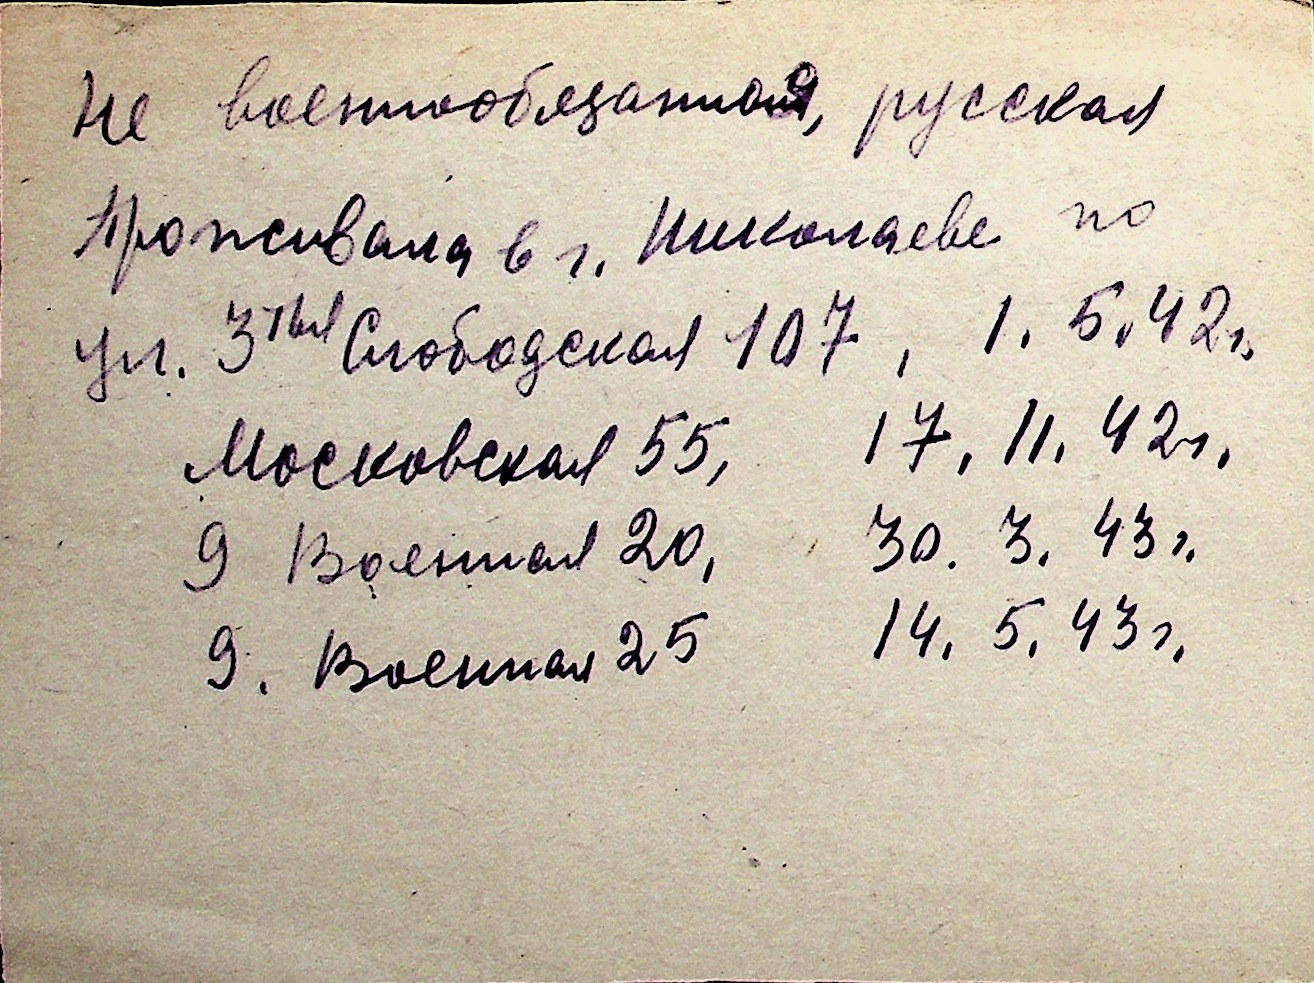 Не военнообязаная, русская
Проживала в г. Николаеве по
ул. 3тья Слободская 107, 1. 5. 42г.
Московская 55, 17. 11. 42г.
9 Военная 20, 30. 3. 43г.
9. Военная 25 14. 5. 43г.